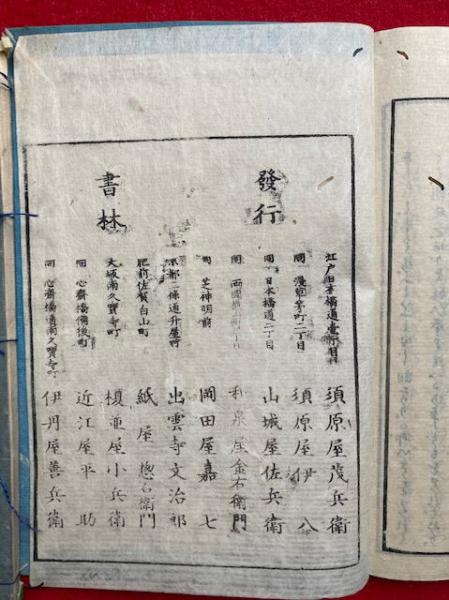 發行
書林
江戸日本橋通壹丁目 須原屋茂兵衛
同 淺草茅町二丁目 須原屋伊八
同 日本橋通二丁目 山城屋佐兵衛
同 兩國 丁目 和泉屋金右衛門
同 芝神明前 岡田屋嘉七
京都二條通升屋町 出雲寺文治郎
肥前佐賀白山町 紙屋惣右衛門
大坂南久寶寺町 榎並屋小兵衛
同 心齋橋備後町 近江屋平助
同 心齋橋通南久寶寺町 伊丹屋善兵衛